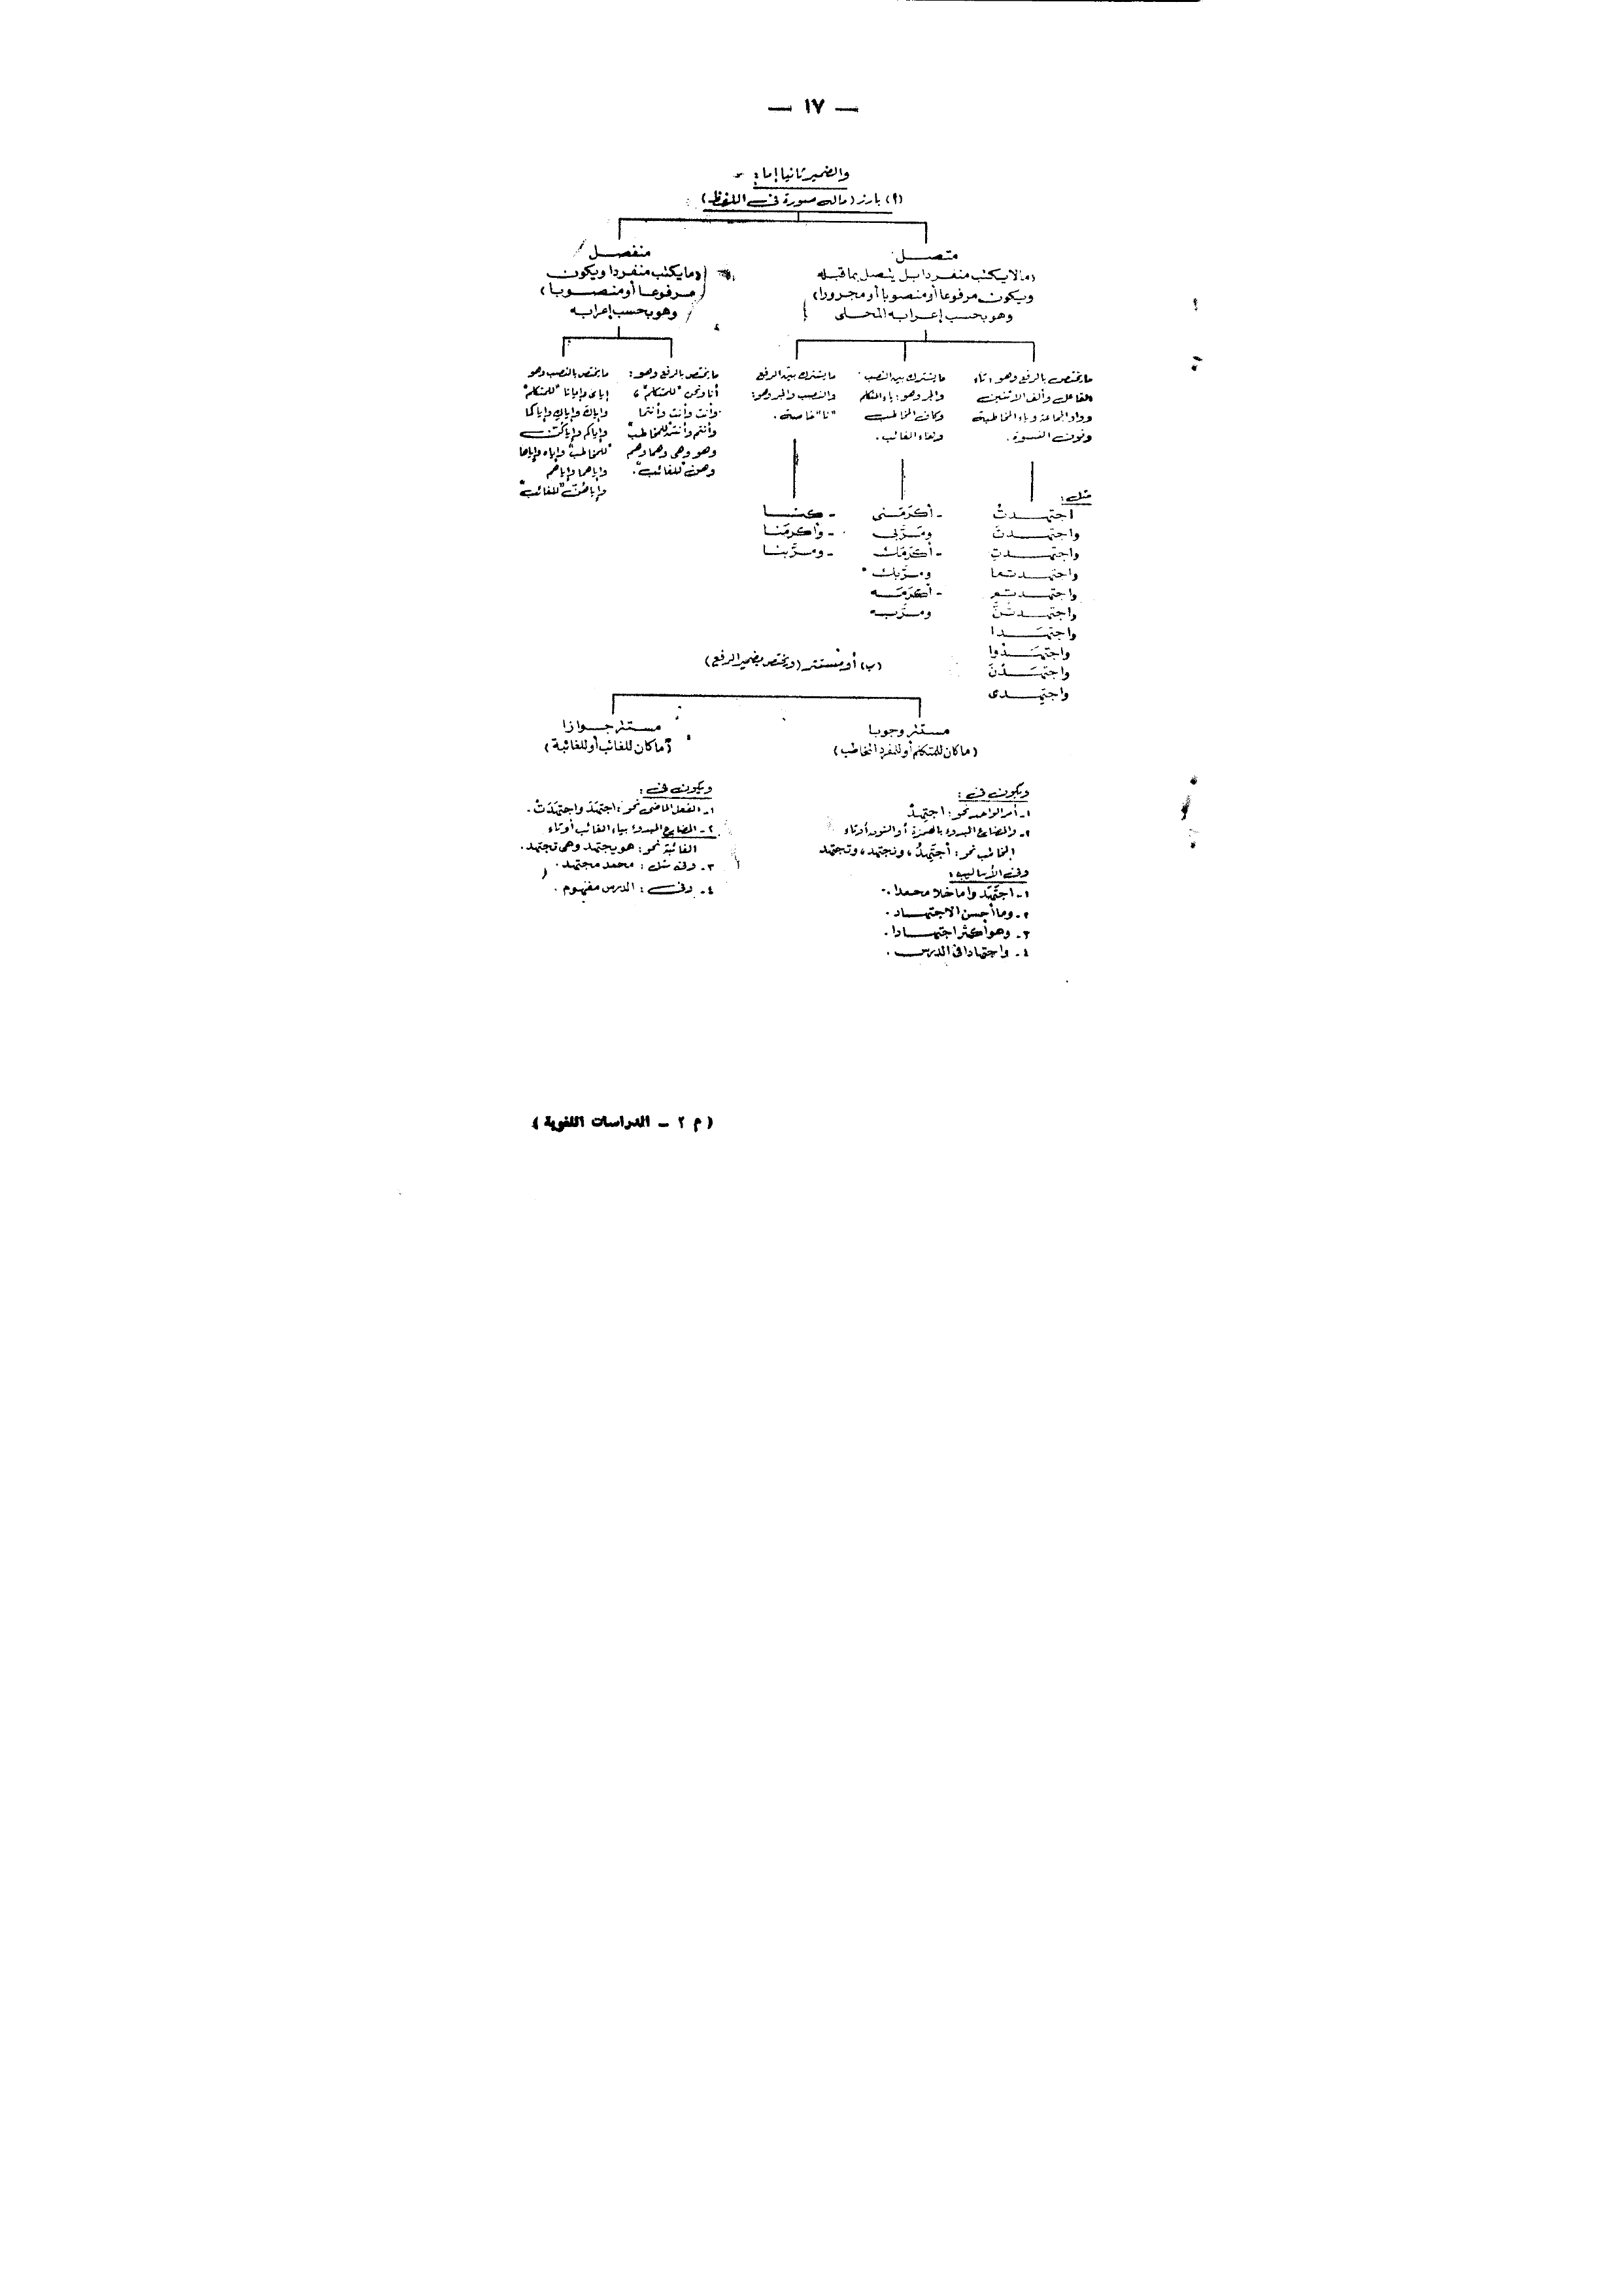 — ١٧ —
والضمير ثانيا إما :
(أ) بارز (ماله صورة فى اللفظ) :
متصل
(مالا يكتب منفردا بل يتصل بما قبله
ويكون مرفوعا أو منصوبا أو مجرورا)
وهو بحسب إعرابه المحلى
منفصل
(ما يكتب منفردا ويكون
مرفوعا أو منصوبا)
وهو بحسب إعرابه
ما يختص بالرفع وهو : تاء
الفاعل وألف الاثنين
وواو الجماعة وياء المخاطبة
ونون النسوة .
ما يشترك بين النصب
والجر وهو : ياء المتكلم
وكاف المخاطب
وهاء الغائب .
ما يشترك بين الرفع
والنصب والجر وهو :
"نا" خاصة .
ما يختص بالرفع وهو :
أنا ونحن "للمتكلم" ،
وأنت وأنت وأنتما
وأنتم وأنتن "للمخاطب"
وهو وهى وهما وهم
وهن "للغائب" .
ما يختص بالنصب وهو
إياى وإيانا "للمتكلم"
وإياكَ وإياكِ وإياكما
وإياكم وإياكن
"للمخاطب" وإياه وإياها
وإياهما وإياهم
وإياهن "للغائب"
مثل :
اجتهدتُ
واجتهدتَ
واجتهدتِ
واجتهدتما
واجتهدتم
واجتهدتُنَّ
واجتهَدا
واجتهَدُوا
واجتهَدْنَ
واجتهِدى
- أكرَمَنى
ومَرَّ بى
- أكرَمَك
ومرَّ بك
- أكرَمَه
ومرَّ به
- كنا
- وأكرمَنا
- ومرَّ بنا
(ب) أو مستتر (ويختص بضمير الرفع)
مستتر وجوبا
(ما كان للمتكلم أو للمفرد المخاطب)
مستتر جوازا
(ما كان للغائب أو للغائبة)
ويكون فى :
١- أمر الواحد نحو : اجتهِدْ
٢- والمضارع المبدوء بالهمزة أو النون أو تاء
المخاطب نحو : أجتهِدُ ، ونجتهد ، وتجتهد
وفى الأساليب :
١- اجتهَدوا ما خلا محمدا .
٢- وما أحسن الاجتهاد .
٣- وهو أكثر اجتهادا .
٤- واجتهادا فى الدرس .
ويكون فى :
١- الفعل الماضى نحو : اجتهَدَ واجتهَدَتْ .
٢- المضارع المبدوء بياء الغائب أو تاء
الغائبة نحو : هو يجتهد وهى تجتهد .
٣- وفى مثل : محمد مجتهد .
٤- وفى : الدرس مفهوم .
( م ٢ – الدراسات اللغوية )